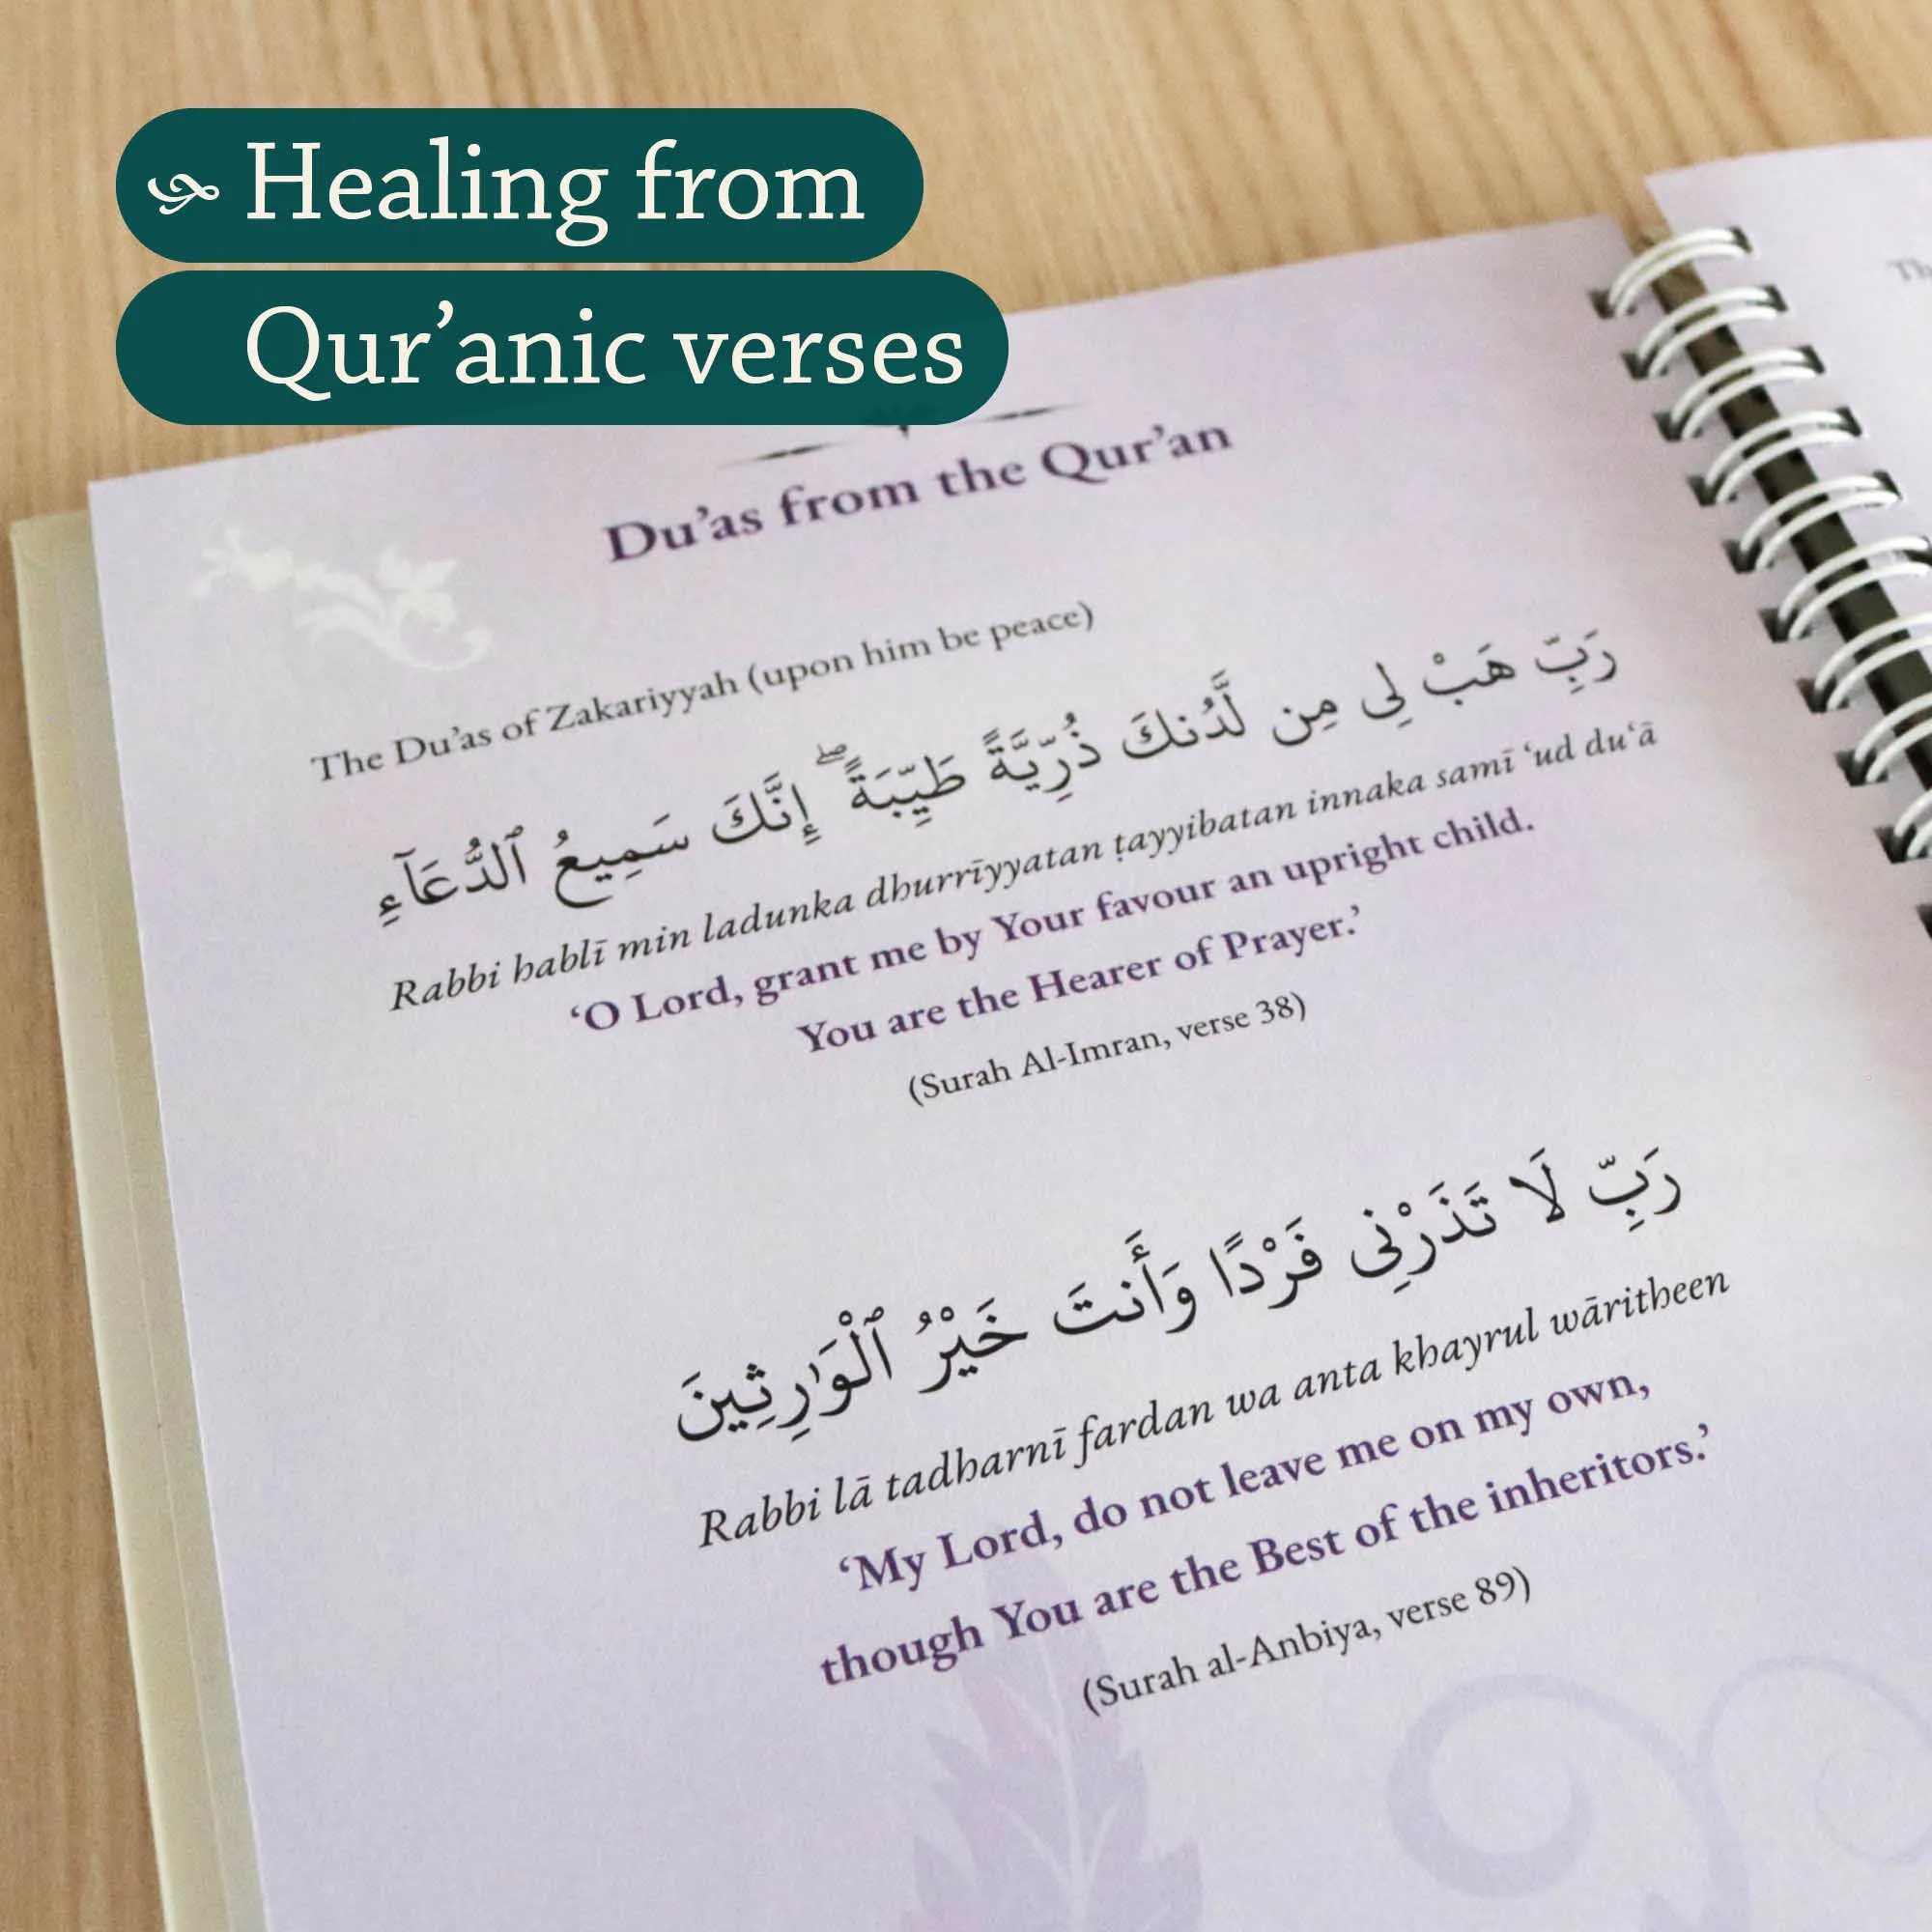 Healing from
Qur’anic verses
Du’as from the Qur’an
The Du’as of Zakariyyah (upon him be peace)
رَبِّ هَبْ لِى مِن لَّدُنكَ ذُرِّيَّةً طَيِّبَةً ۖ إِنَّكَ سَمِيعُ ٱلدُّعَآءِ
Rabbi hablī min ladunka dhurrīyyatan ṭayyibatan innaka samī ‘ud du‘ā
‘O Lord, grant me by Your favour an upright child.
You are the Hearer of Prayer.’
(Surah Al-Imran, verse 38)
رَبِّ لَا تَذَرْنِى فَرْدًا وَأَنتَ خَيْرُ ٱلْوَٰرِثِينَ
Rabbi lā tadharnī fardan wa anta khayrul wāritheen
‘My Lord, do not leave me on my own,
though You are the Best of the inheritors.’
(Surah al-Anbiya, verse 89)